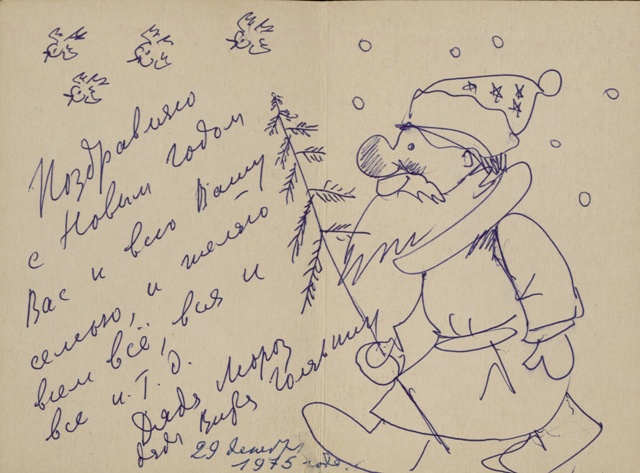 Поздравляю
с Новым годом
Вас и всю Вашу
семью, и желаю
всем всё, вся и
все и.т.д.
Дядя Мороз
дядя Витя
29 декабря
1975 года.